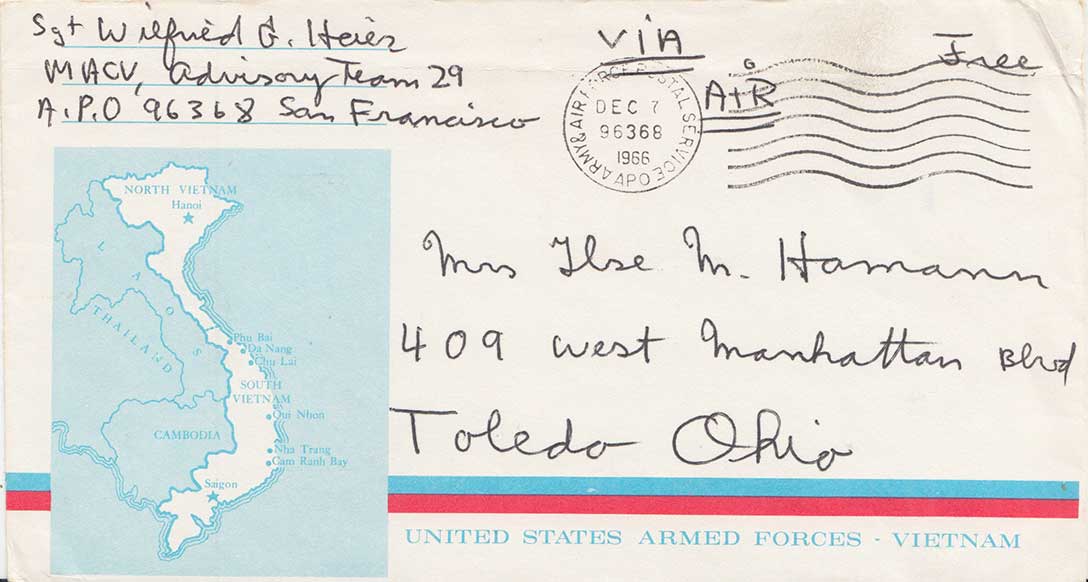 Sgt Wilfried G. Heier
MACV, Advisory Team 29
A.P.O 96368 San Francisco
VIA
AIR
Free
ARMY & AIR FORCE POSTAL SERVICE
DEC 7
96368
1966
APO
Mrs Ilse M. Hamann
409 West Manhattan Blvd
Toledo Ohio
NORTH VIETNAM
Hanoi
LAOS
THAILAND
Phu Bai
Da Nang
Chu Lai
SOUTH
VIETNAM
Qui Nhon
CAMBODIA
Nha Trang
Cam Ranh Bay
Saigon
UNITED STATES ARMED FORCES - VIETNAM